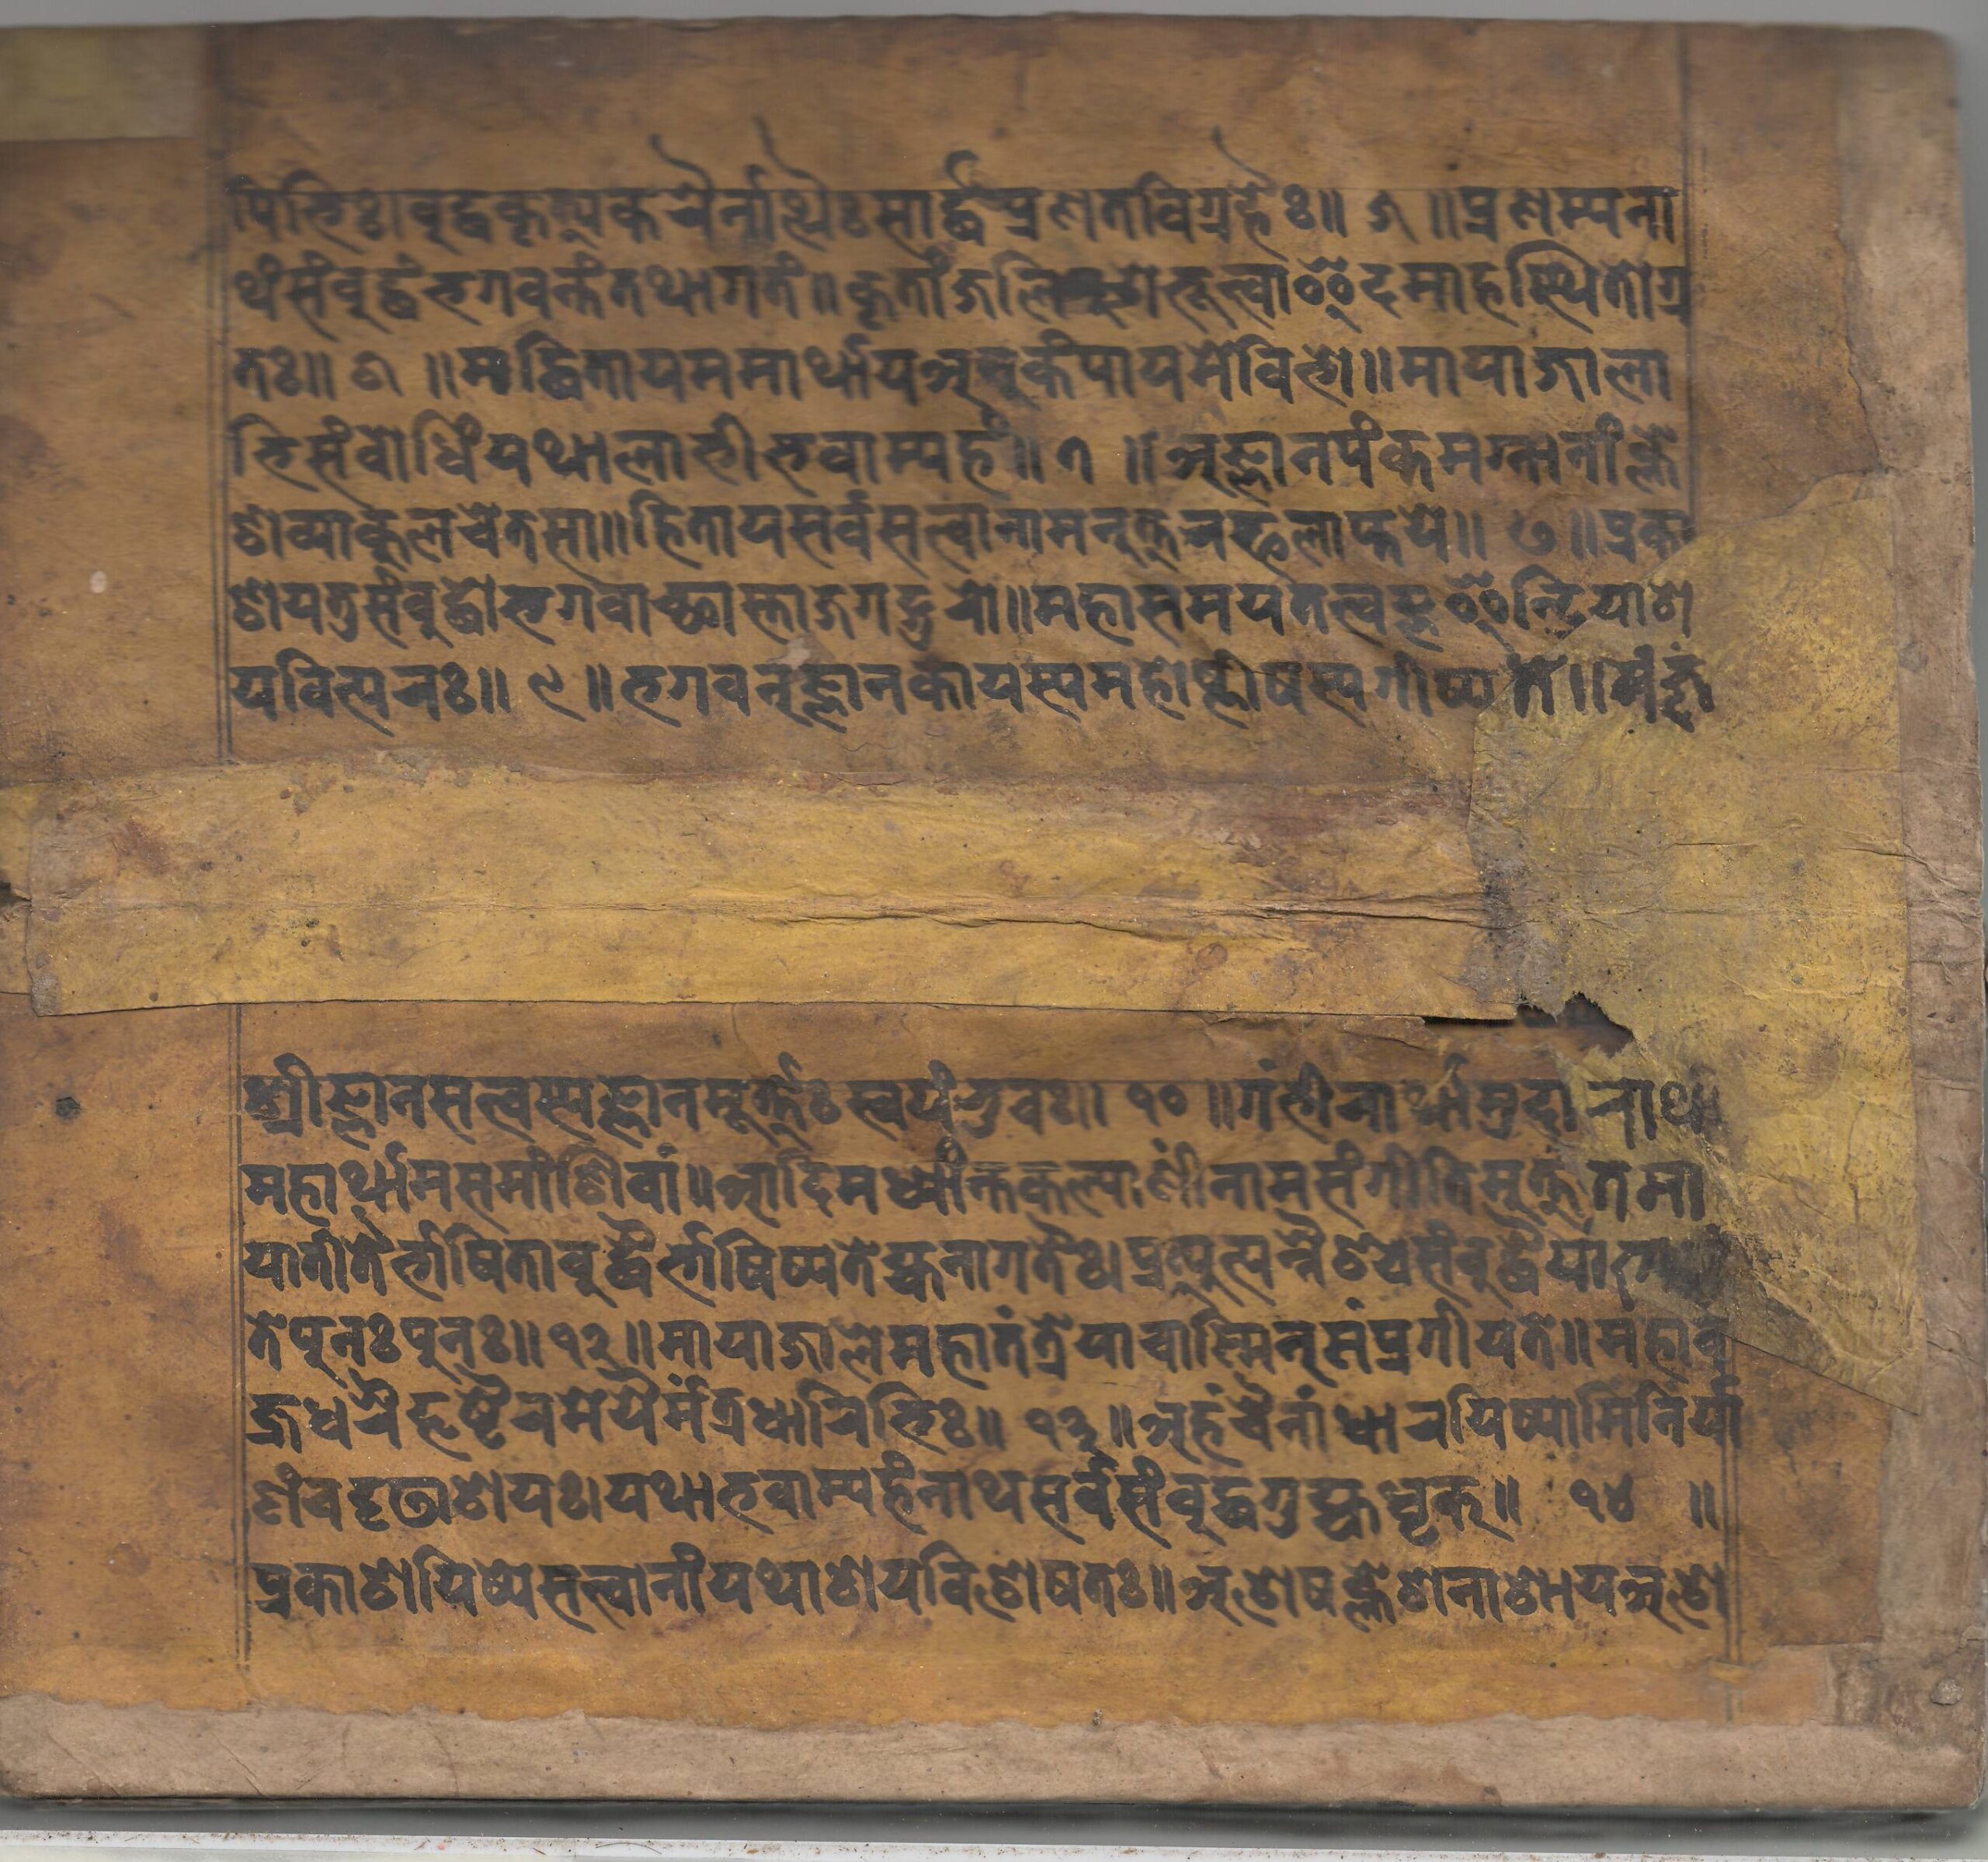 पिभिः। बुद्धकृत्यकरैर्नाथैः सार्द्धं प्रणतविग्रहैः॥ ५ ॥ प्रणम्य ना
थं संबुद्धं भगवन्तं तथागतं॥ कृतांजलि भूत्वा इदमाह स्थितोग्र
तः॥ ६ ॥ मद्धिताय ममार्थाय अनुकंपाय मे विभो॥ मायाजाला
भिसंवोधिं यथालाभी भवाम्यहं॥ ७ ॥ अज्ञानपंकमग्नानां क्ले
शव्याकुलचेतसा॥ हिताय सर्वसत्वानामनुत्तरफलाप्तये॥ ८ ॥ प्रका
शयतु संबुद्धो भगवाच्छास्ता जगद्गुरो॥ महासमयतत्वज्ञ इन्द्रियाश
यवित्परः॥ ९ ॥ भगवन् ज्ञानकायस्य महोष्णीषस्य गीष्पते॥ मंजु
श्रीज्ञानसत्वस्य ज्ञानमूर्त्तेः स्वयंभुवः॥ १० ॥ गंभीरार्थामुदारार्थां
महार्थामसमां शिवां॥ आदिमध्यांन्तकल्याणीं नामसंगीतिमुत्तमा
यातीतैर्भाषिता बुद्धैर्भाषिष्यते ह्यनागतैः। प्रत्युत्पन्नैश्च संबुद्धैर्या
ते पुनः पुनः॥ १२ ॥ मायाजाले महातंत्रे या चास्मिन् संप्रगीयते॥ महाव
ज्रधरैर्हृष्टैरमेयैर्मंत्रधारिभिः॥ १३ ॥ अहं चैनां धारयिष्यामि निर्या
णं व दृढाशयः। यथा भवाम्यहं नाथ सर्वसंबुद्धगुह्यधृक्॥ १४ ॥
प्रकाशयिष्ये सत्वानां यथाशयविशेषतः॥ अशेषक्लेशनाशाय अशे